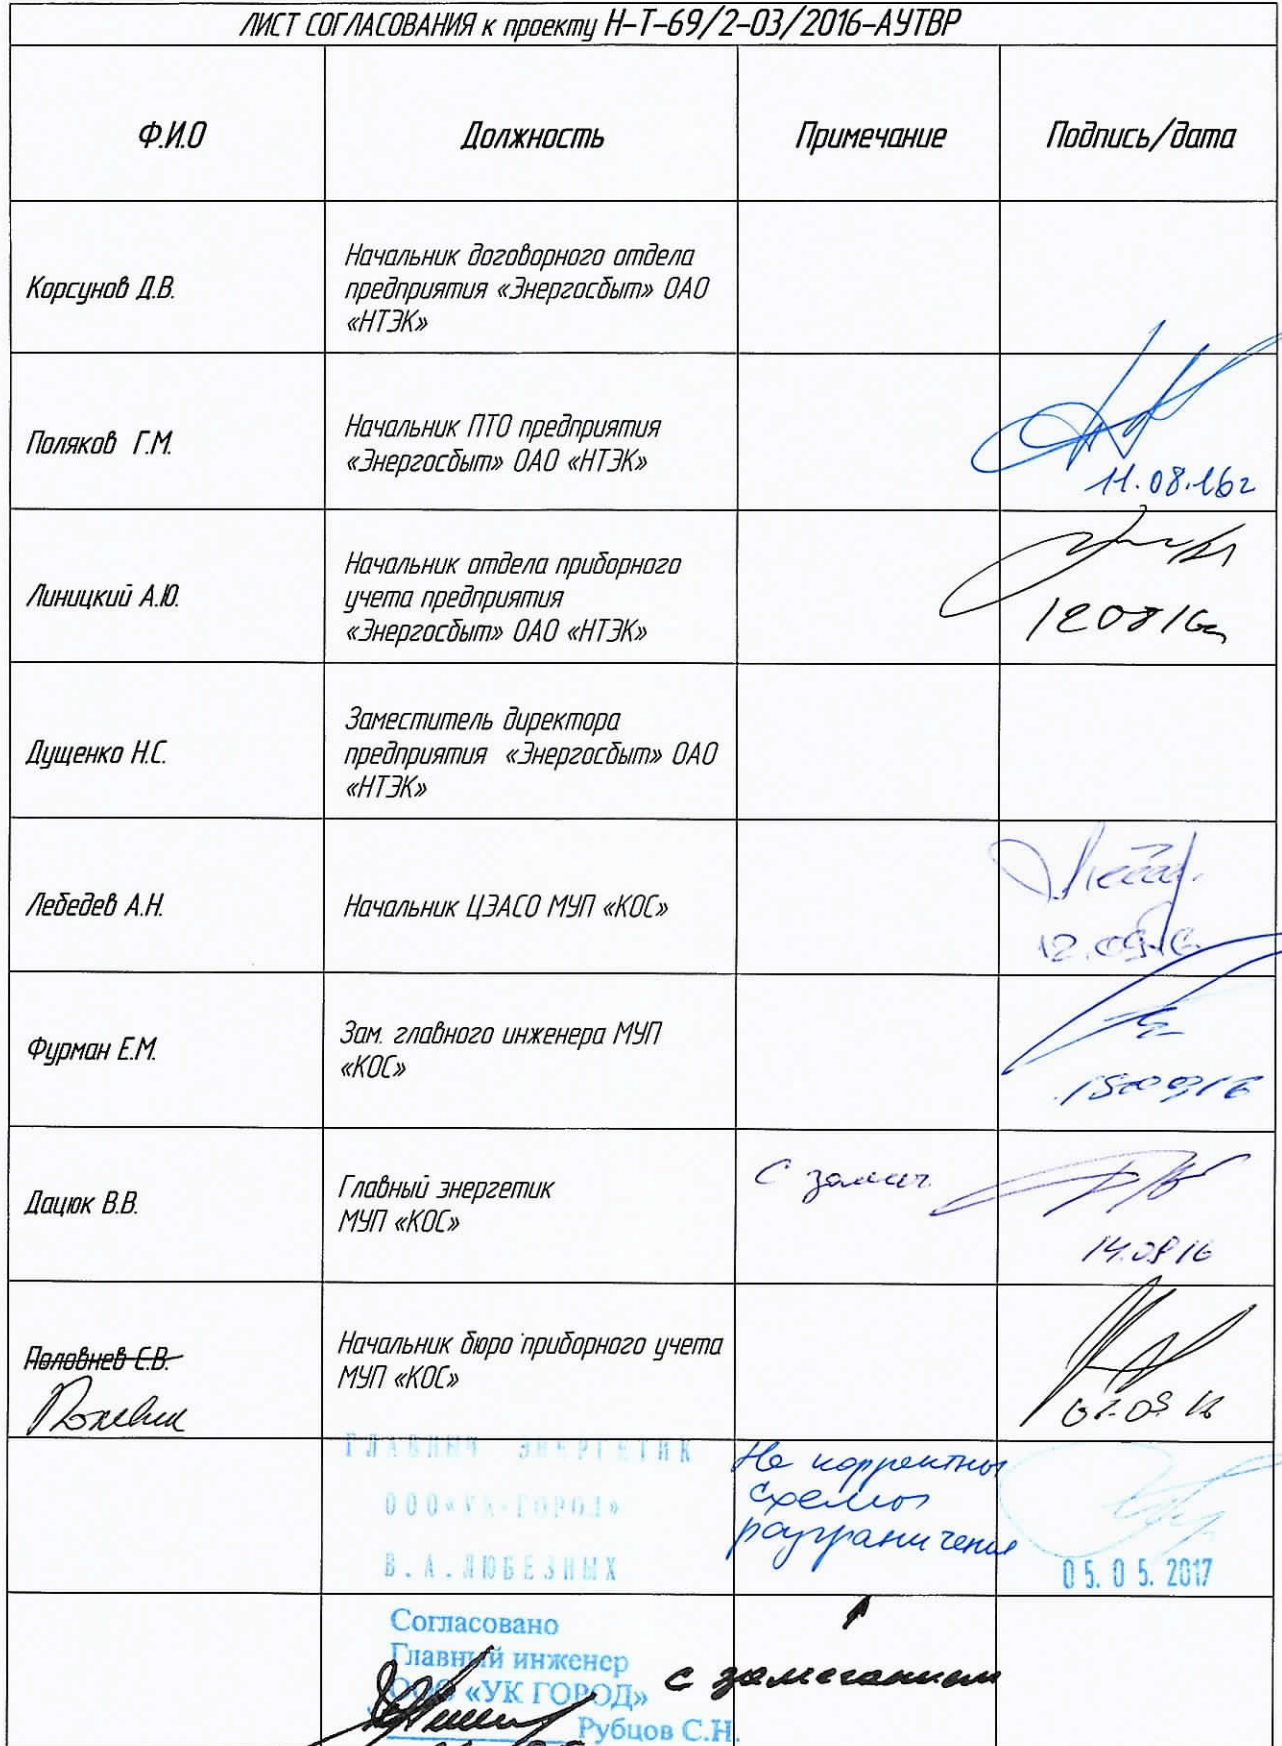 ЛИСТ СОГЛАСОВАНИЯ к проекту Н-Т-69/2-03/2016-АУТВР
Ф.И.О Должность Примечание Подпись/дата
Корсунов Д.В.
Начальник договорного отдела
предприятия «Энергосбыт» ОАО
«НТЭК»
Поляков Г.М.
Начальник ПТО предприятия
«Энергосбыт» ОАО «НТЭК»
11.08.16г
Линицкий А.Ю.
Начальник отдела приборного
учета предприятия
«Энергосбыт» ОАО «НТЭК»
120816г
Дущенко Н.С.
Заместитель директора
предприятия «Энергосбыт» ОАО
«НТЭК»
Лебедев А.Н.
Начальник ЦЭАСО МУП «КОС»
12.09.16.
Фурман Е.М.
Зам. главного инженера МУП
«КОС»
Дацюк В.В.
Главный энергетик
МУП «КОС»
С замеч.
Половнев С.В.
Начальник бюро приборного учета
МУП «КОС»
ГЛАВНЫЙ ЭНЕРГЕТИК
ООО«УК-ГОРОД»
В.А.ЛЮБЕЗНЫХ
Не корректны
схемы
разграничения
05.05.2017
Согласовано
Главный инженер
ООО «УК ГОРОД»
Рубцов С.Н.
с замечанием